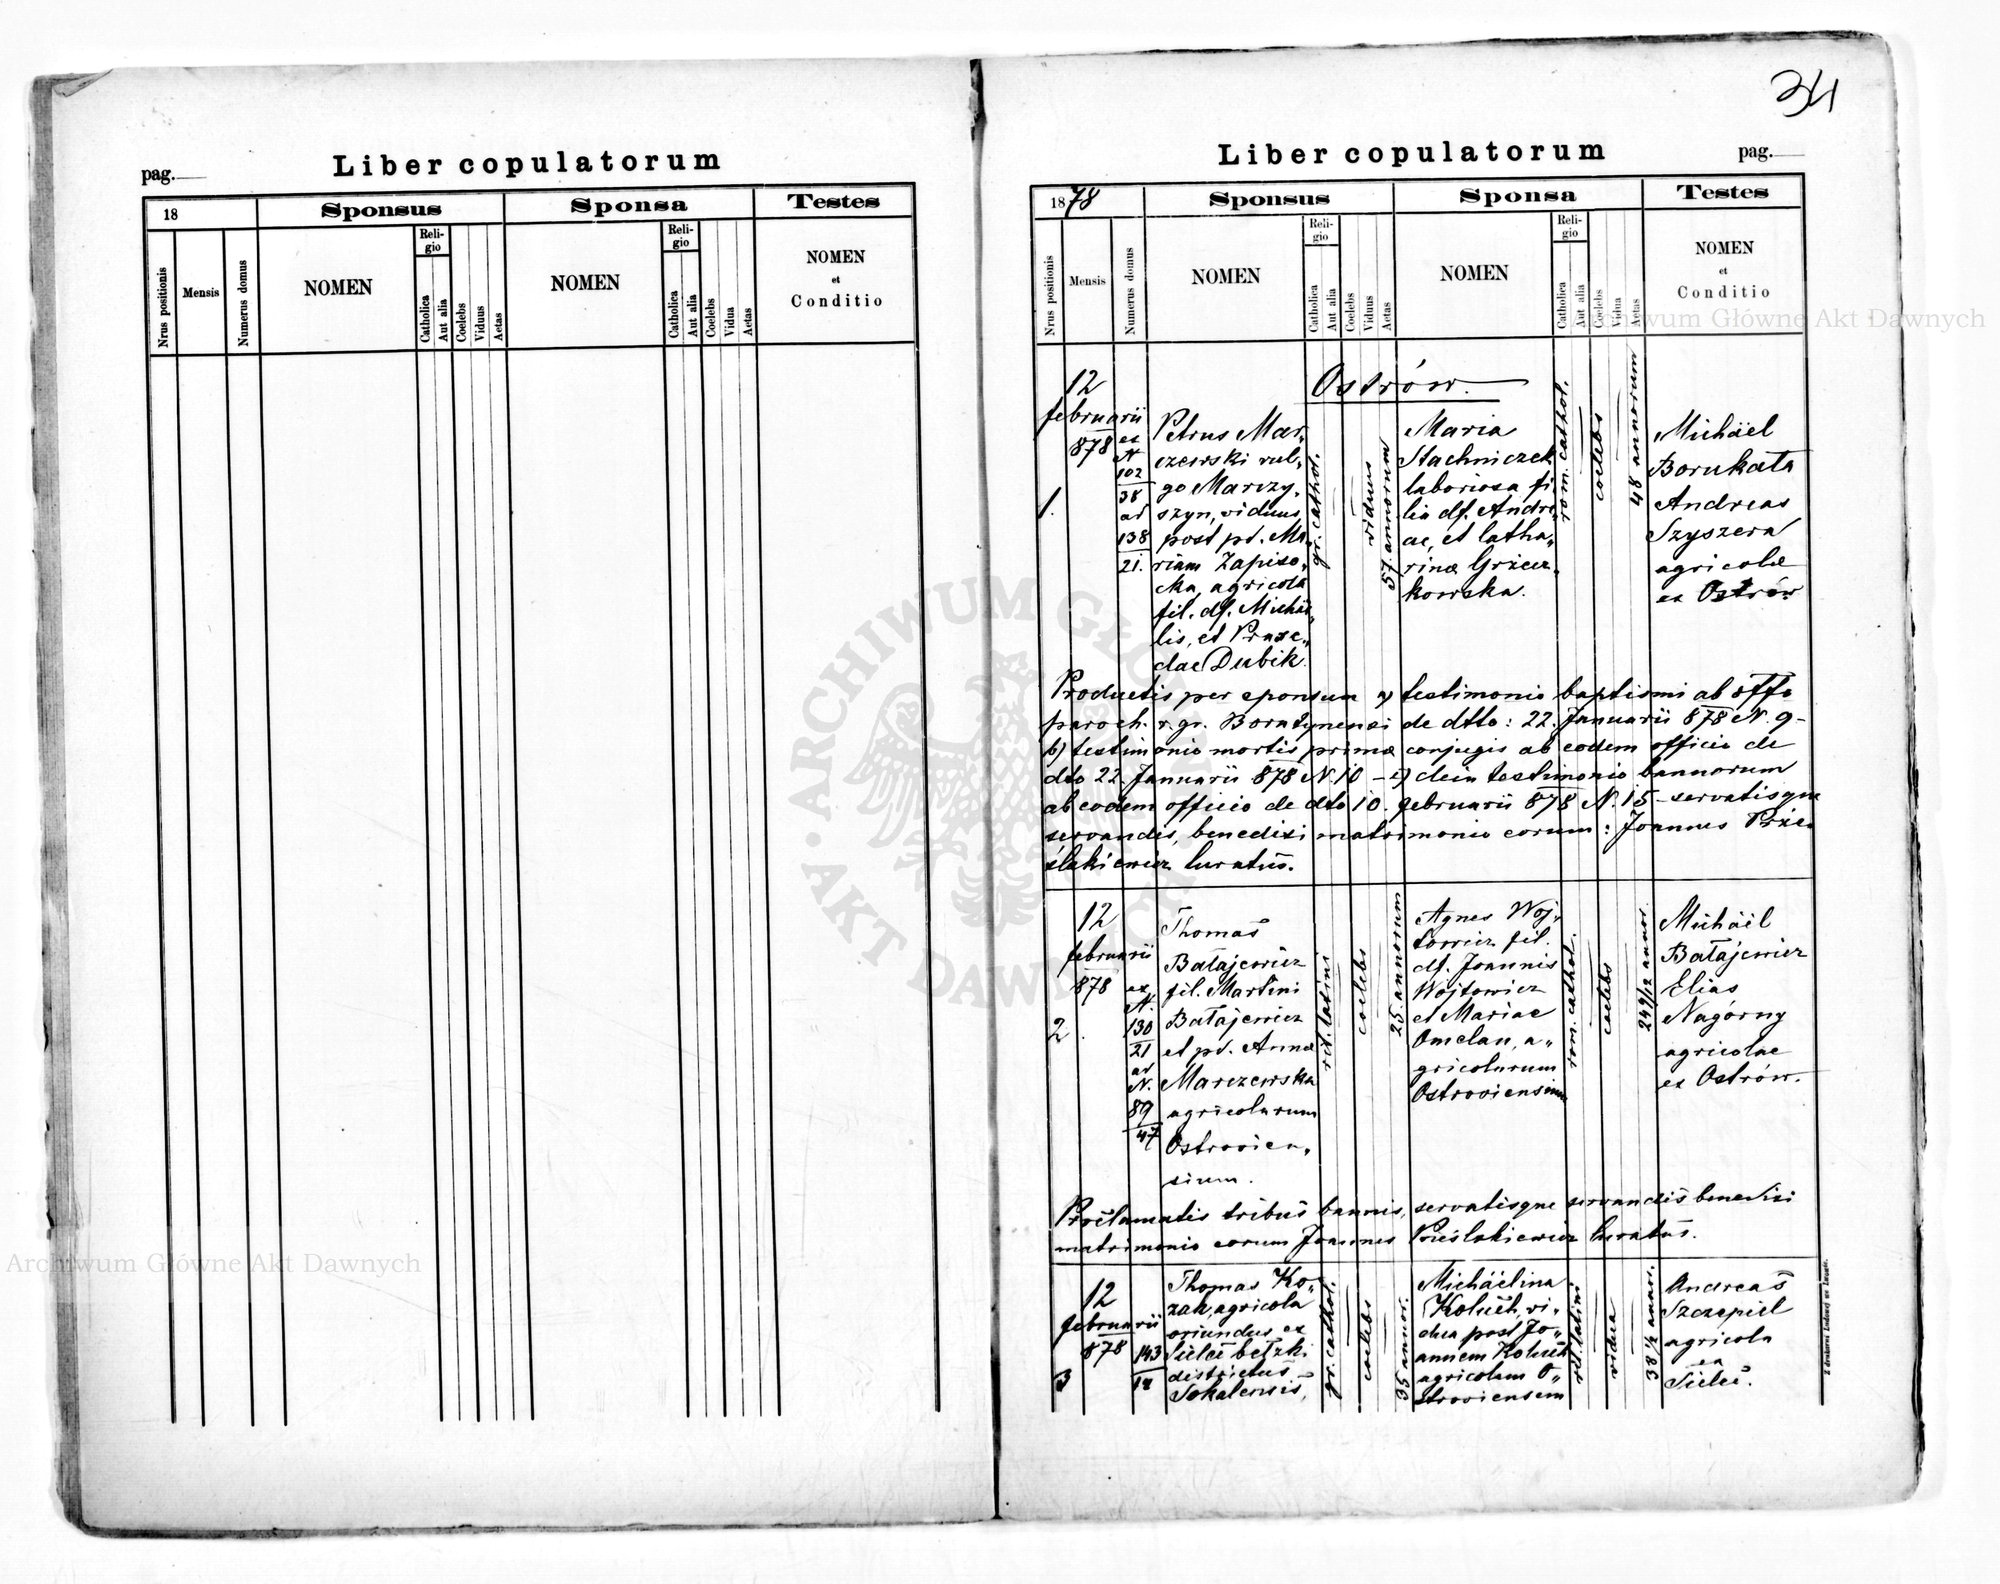 34
Liber copulatorum
pag.
18
Sponsus
Sponsa
Testes
Nrus positionis
Mensis
Numerus domus
NOMEN
Reli-
gio
Catholica
Aut alia
Coelebs
Viduus
Aetas
NOMEN
Reli-
gio
Catholica
Aut alia
Coelebs
Vidua
Aetas
NOMEN
et
Conditio
Liber copulatorum
pag.
1878
Sponsus
Sponsa
Testes
Nrus positionis
Mensis
Numerus domus
NOMEN
Reli-
gio
Catholica
Aut alia
Coelebs
Viduus
Aetas
NOMEN
Reli-
gio
Catholica
Aut alia
Coelebs
Vidua
Aetas
NOMEN
et
Conditio
Ostrów.
1.
12
februarii
878
ex
N
102
38
ad
138
21.
Petrus Mar„
czewski vul„
go Marczy„
szyn, viduus
post pd. Ma„
riam Zapiso„
cka, agricola
fil. df. Michäe„
lis, et Praxe„
dae Dubik.
gr. cathol.
viduus
57 annorum
Maria
Stachniczek
laboriosa fi„
lia df. Andre„
ae, et Catha„
rinae Grzecz„
kowska.
rom. cathol.
coelebs
48 annorum
Michäel
Borukata
Andreas
Szyszera
agricolae
ex Ostrów
Productis per sponsum a) testimonio baptismi ab offo
paroch. r. gr. Boratynensi de dtto: 22. Januarii 878 N. 9-
b) testimonio mortis primae conjugis ab eodem officio de
dto 22. Januarii 878 N. 10 - c) dein testimonio bannorum
ab eodem officio de dto 10. februarii 878 N. 15 - servatisque
servandis, benedixi matrimonio eorum: Joannes Prze„
ślakiewicz Curatus.
2
12
februarii
878
ex
N.
130
21
ad
N.
89
47
Thomas
Batajewicz
fil. Martini
Batajewicz
et pd. Annae
Marczewska
agricolarum
Ostrovien„
sium.
rit. latini
coelebs
25 annorum
Agnes Woj„
towicz fil.
df. Joannis
Wojtowicz
et Mariae
Omelan, a„
gricolarum
Ostroviensium
rom. cathol.
coelebs
24 9/12 annor.
Michäel
Batajewicz
Elias
Nagórny
agricolae
ex Ostrów.
Proclamatis tribus bannis, servatisque servandis benedixi
matrimonio eorum Joannes Prześlakiewicz Curatus.
3
12
februarii
878
143
Thomas Ko„
zak, agricola
oriundus ex
Sielec bełzki
districtus
Sokalensis,
gr. cathol.
coelebs
35 annor.
Michäelina
Koluch, vi„
dua post Jo„
annem Koluch
agricolam O„
stroviensem
rit. latini
vidua
38 1/2 annor.
Andreas
Szczepiel
agricola
ex
Sielec.
ARCHIWUM GŁÓWNE AKT DAWNYCH
Archiwum Główne Akt Dawnych
Archiwum Główne Akt Dawnych